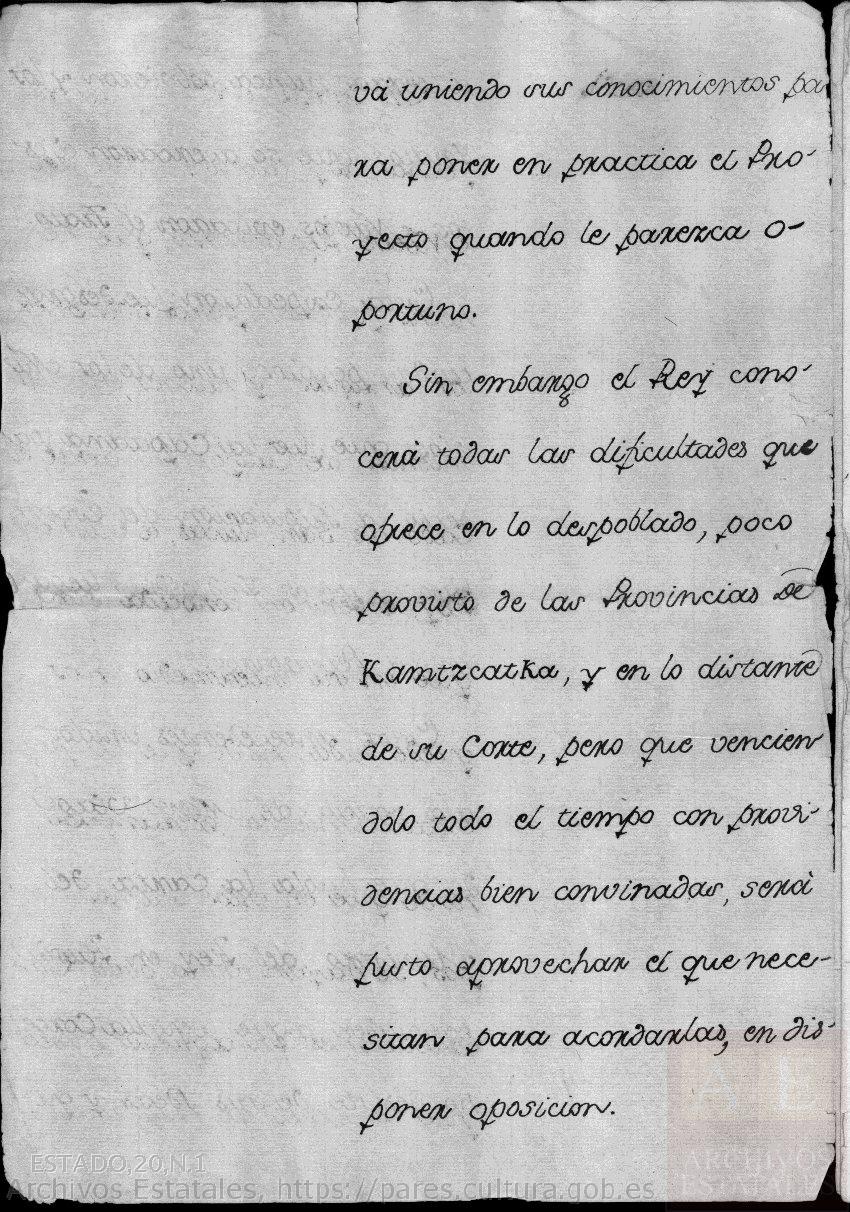 va uniendo sus conocimientos pa
ra poner en practica el Pro-
yecto quando le parezca o-
portuno.
Sin embargo el Rey cono-
cerà todas las dificultades que
ofrece en lo despoblado, poco
provisto de las Provincias de
Kamtzcatka, y en lo distante
de su Corte, pero que vencien
dolo todo el tiempo con provi-
dencias bien convinadas, serà
justo aprovechar el que nece-
sitan para acordarlas, en dis-
poner oposicion.
AE
ARCHIVOS
ESTATALES
ESTADO,20,N.1
Archivos Estatales, https://pares.cultura.gob.es